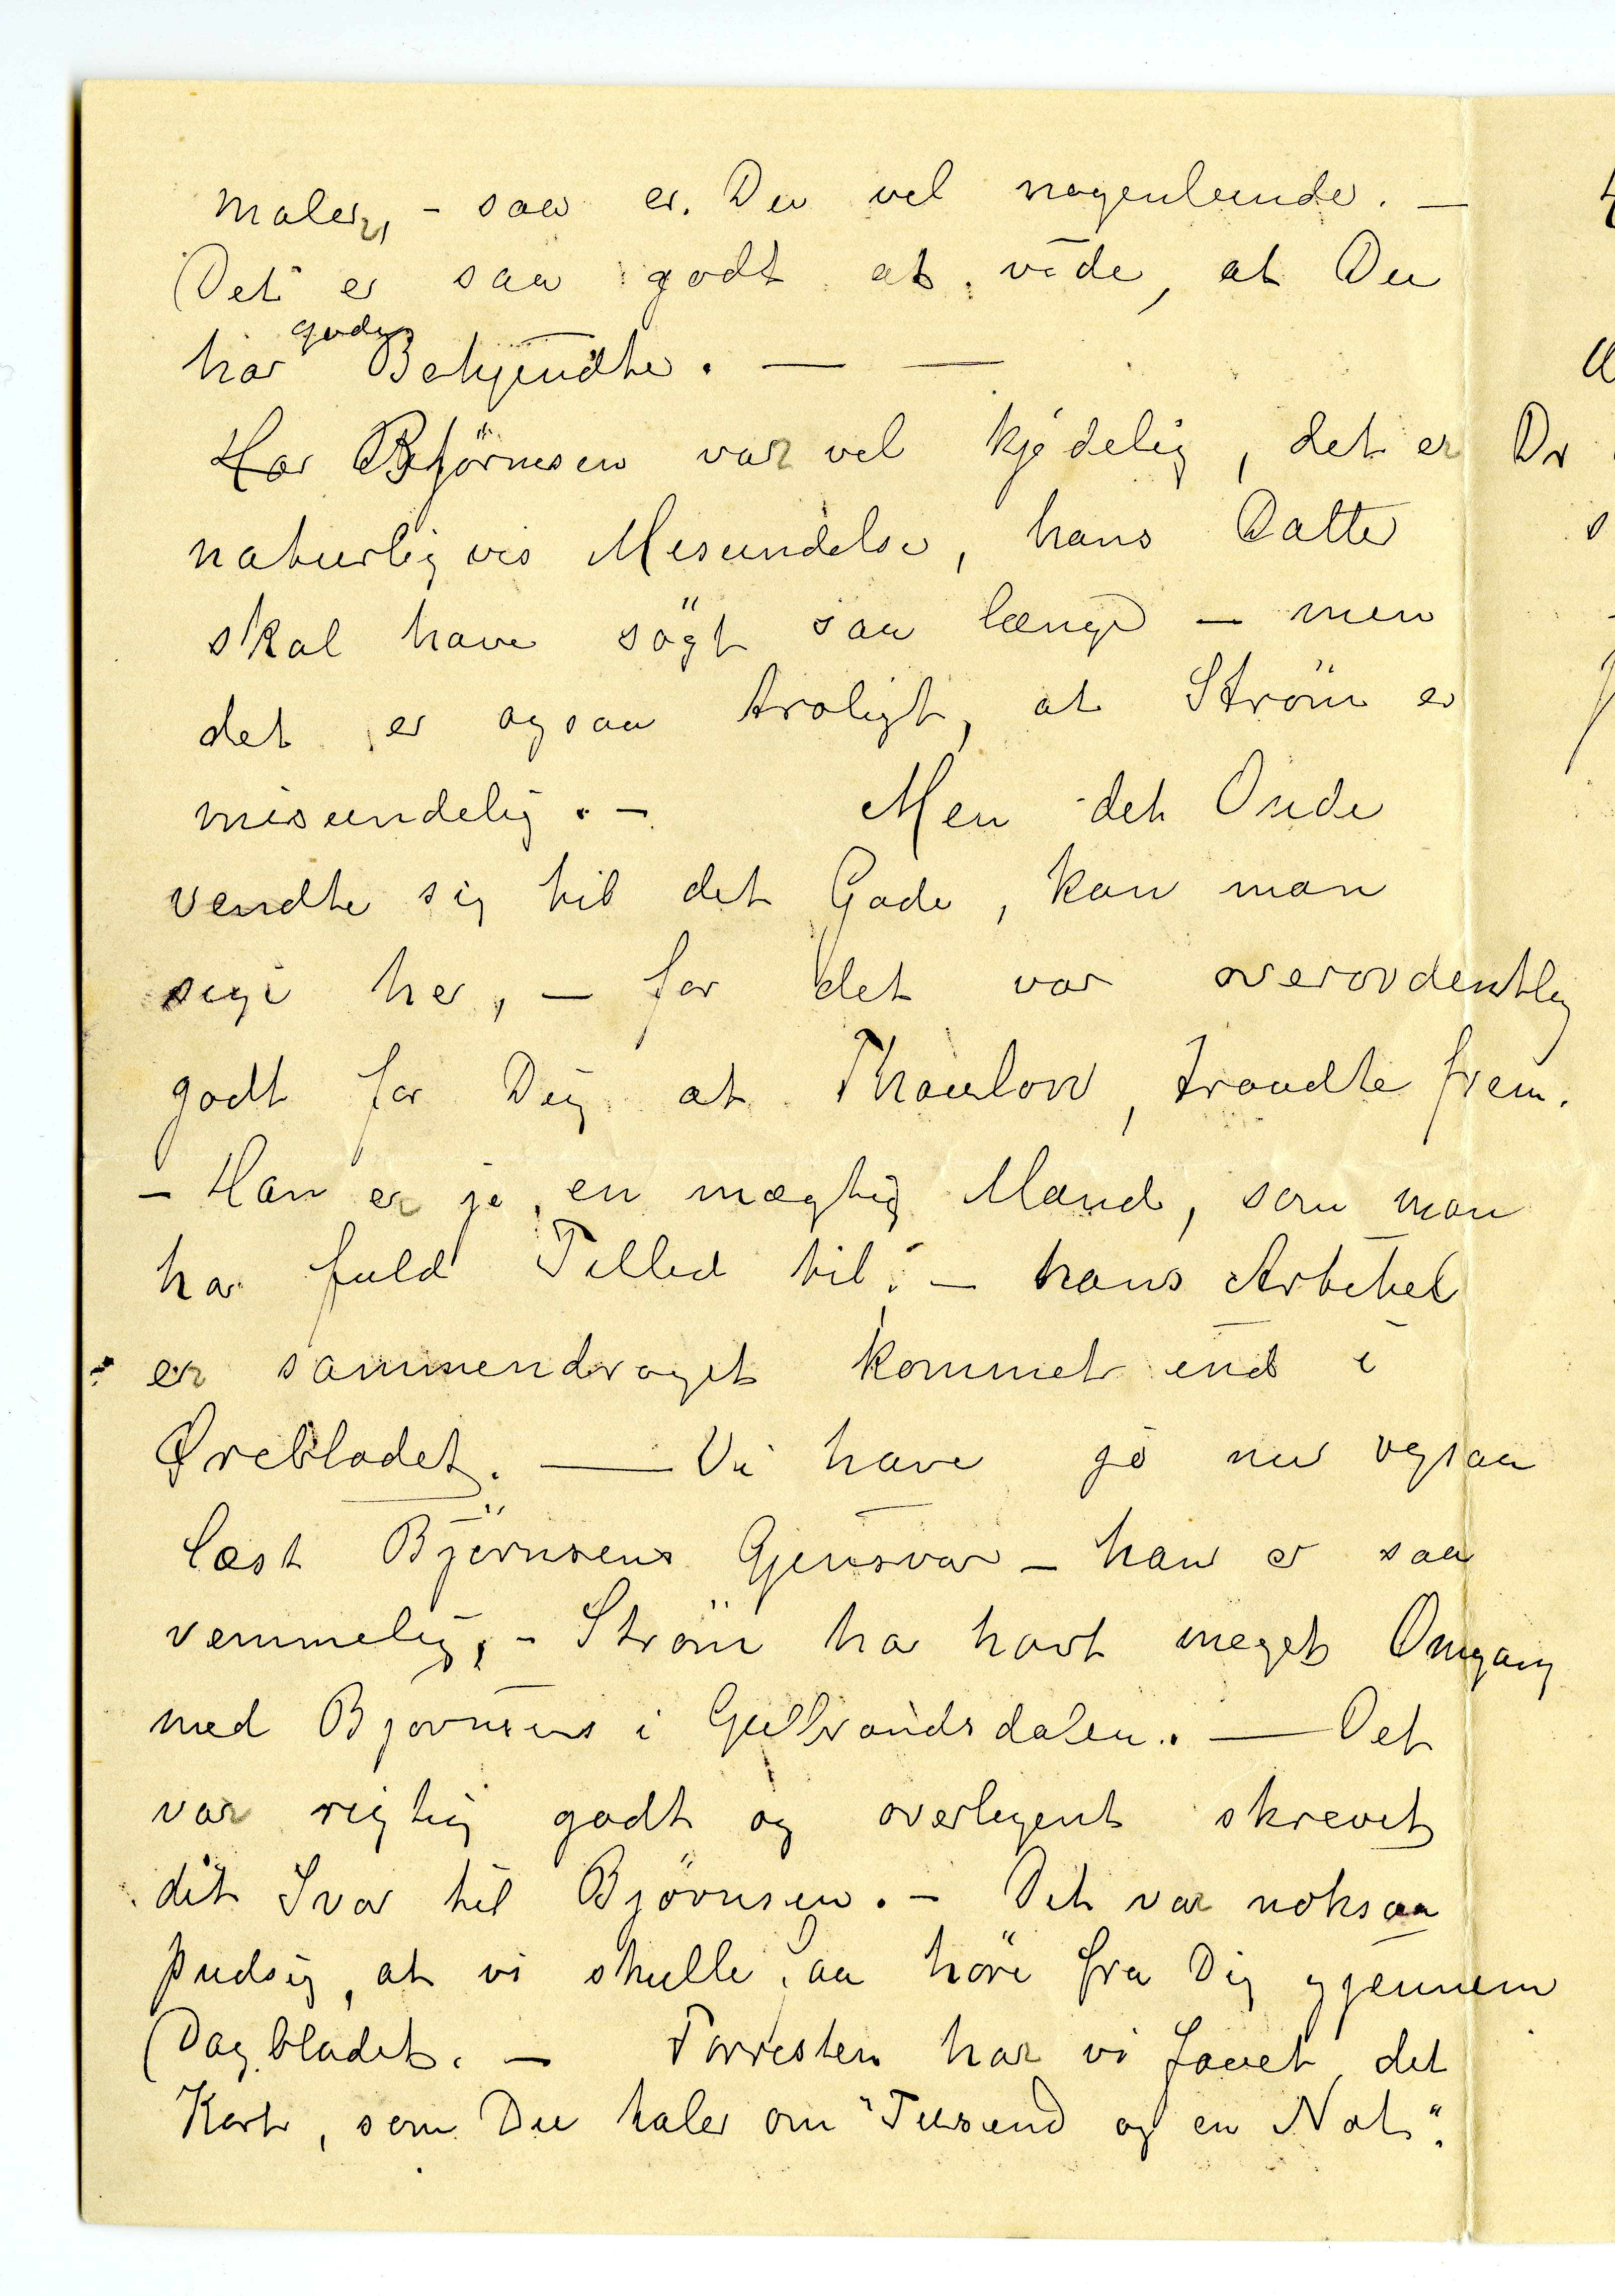 maler, – saa er Du vel nogenlunde. –
Det er saa godt at vide, at Du
har gode Bekjendte. — —
Har Björnsen var vel kjedelig, det er
naturligvis Misundelse, hans Datter
skal have søgt saa længe – men
det er ogsaa troligt, at Ström er
misundelig. – Men det Onde
vendte sig til det Gode, kan man
sige her, – for det var overordentlig
godt for Dig at Thaulow, traadte frem.
– Han er jo en mægtig Mand, som man
har fuld Tillid til. – hans Artikel
er sammendraget kommet ind i
Ørebladet. — Vi have jo nu ogsaa
læst Björnsens Gjensvar – han er saa
vemmelig, – Ström har havt meget Omgang
med Bjørnsens i Gulbrandsdalen. — Det
var rigtig godt og overlegent skrevet
dit Svar til Björnsen. – Det var noksaa
pudsig, at vi skulle faa höre fra Dig gjennem
Dagbladet. – Forresten har vi faaet det
Kort, som Du taler om "Tusend og en Nat".
Dr